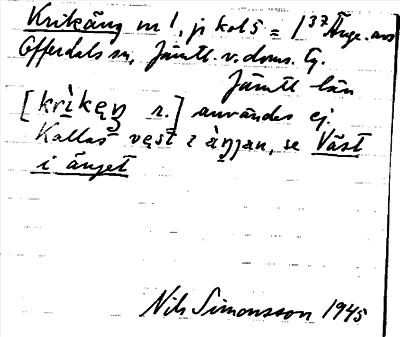 Krikäng nr 1, på kol 5 = 1³⁷ Änge.
Offerdals sn, Jämtl. v. doms. tg.
Jämtl län
[krìkęŋ n.] användes ej.
Kallas vęst i àŋjan, se Väst
i änget
Nils Simonsson 1945